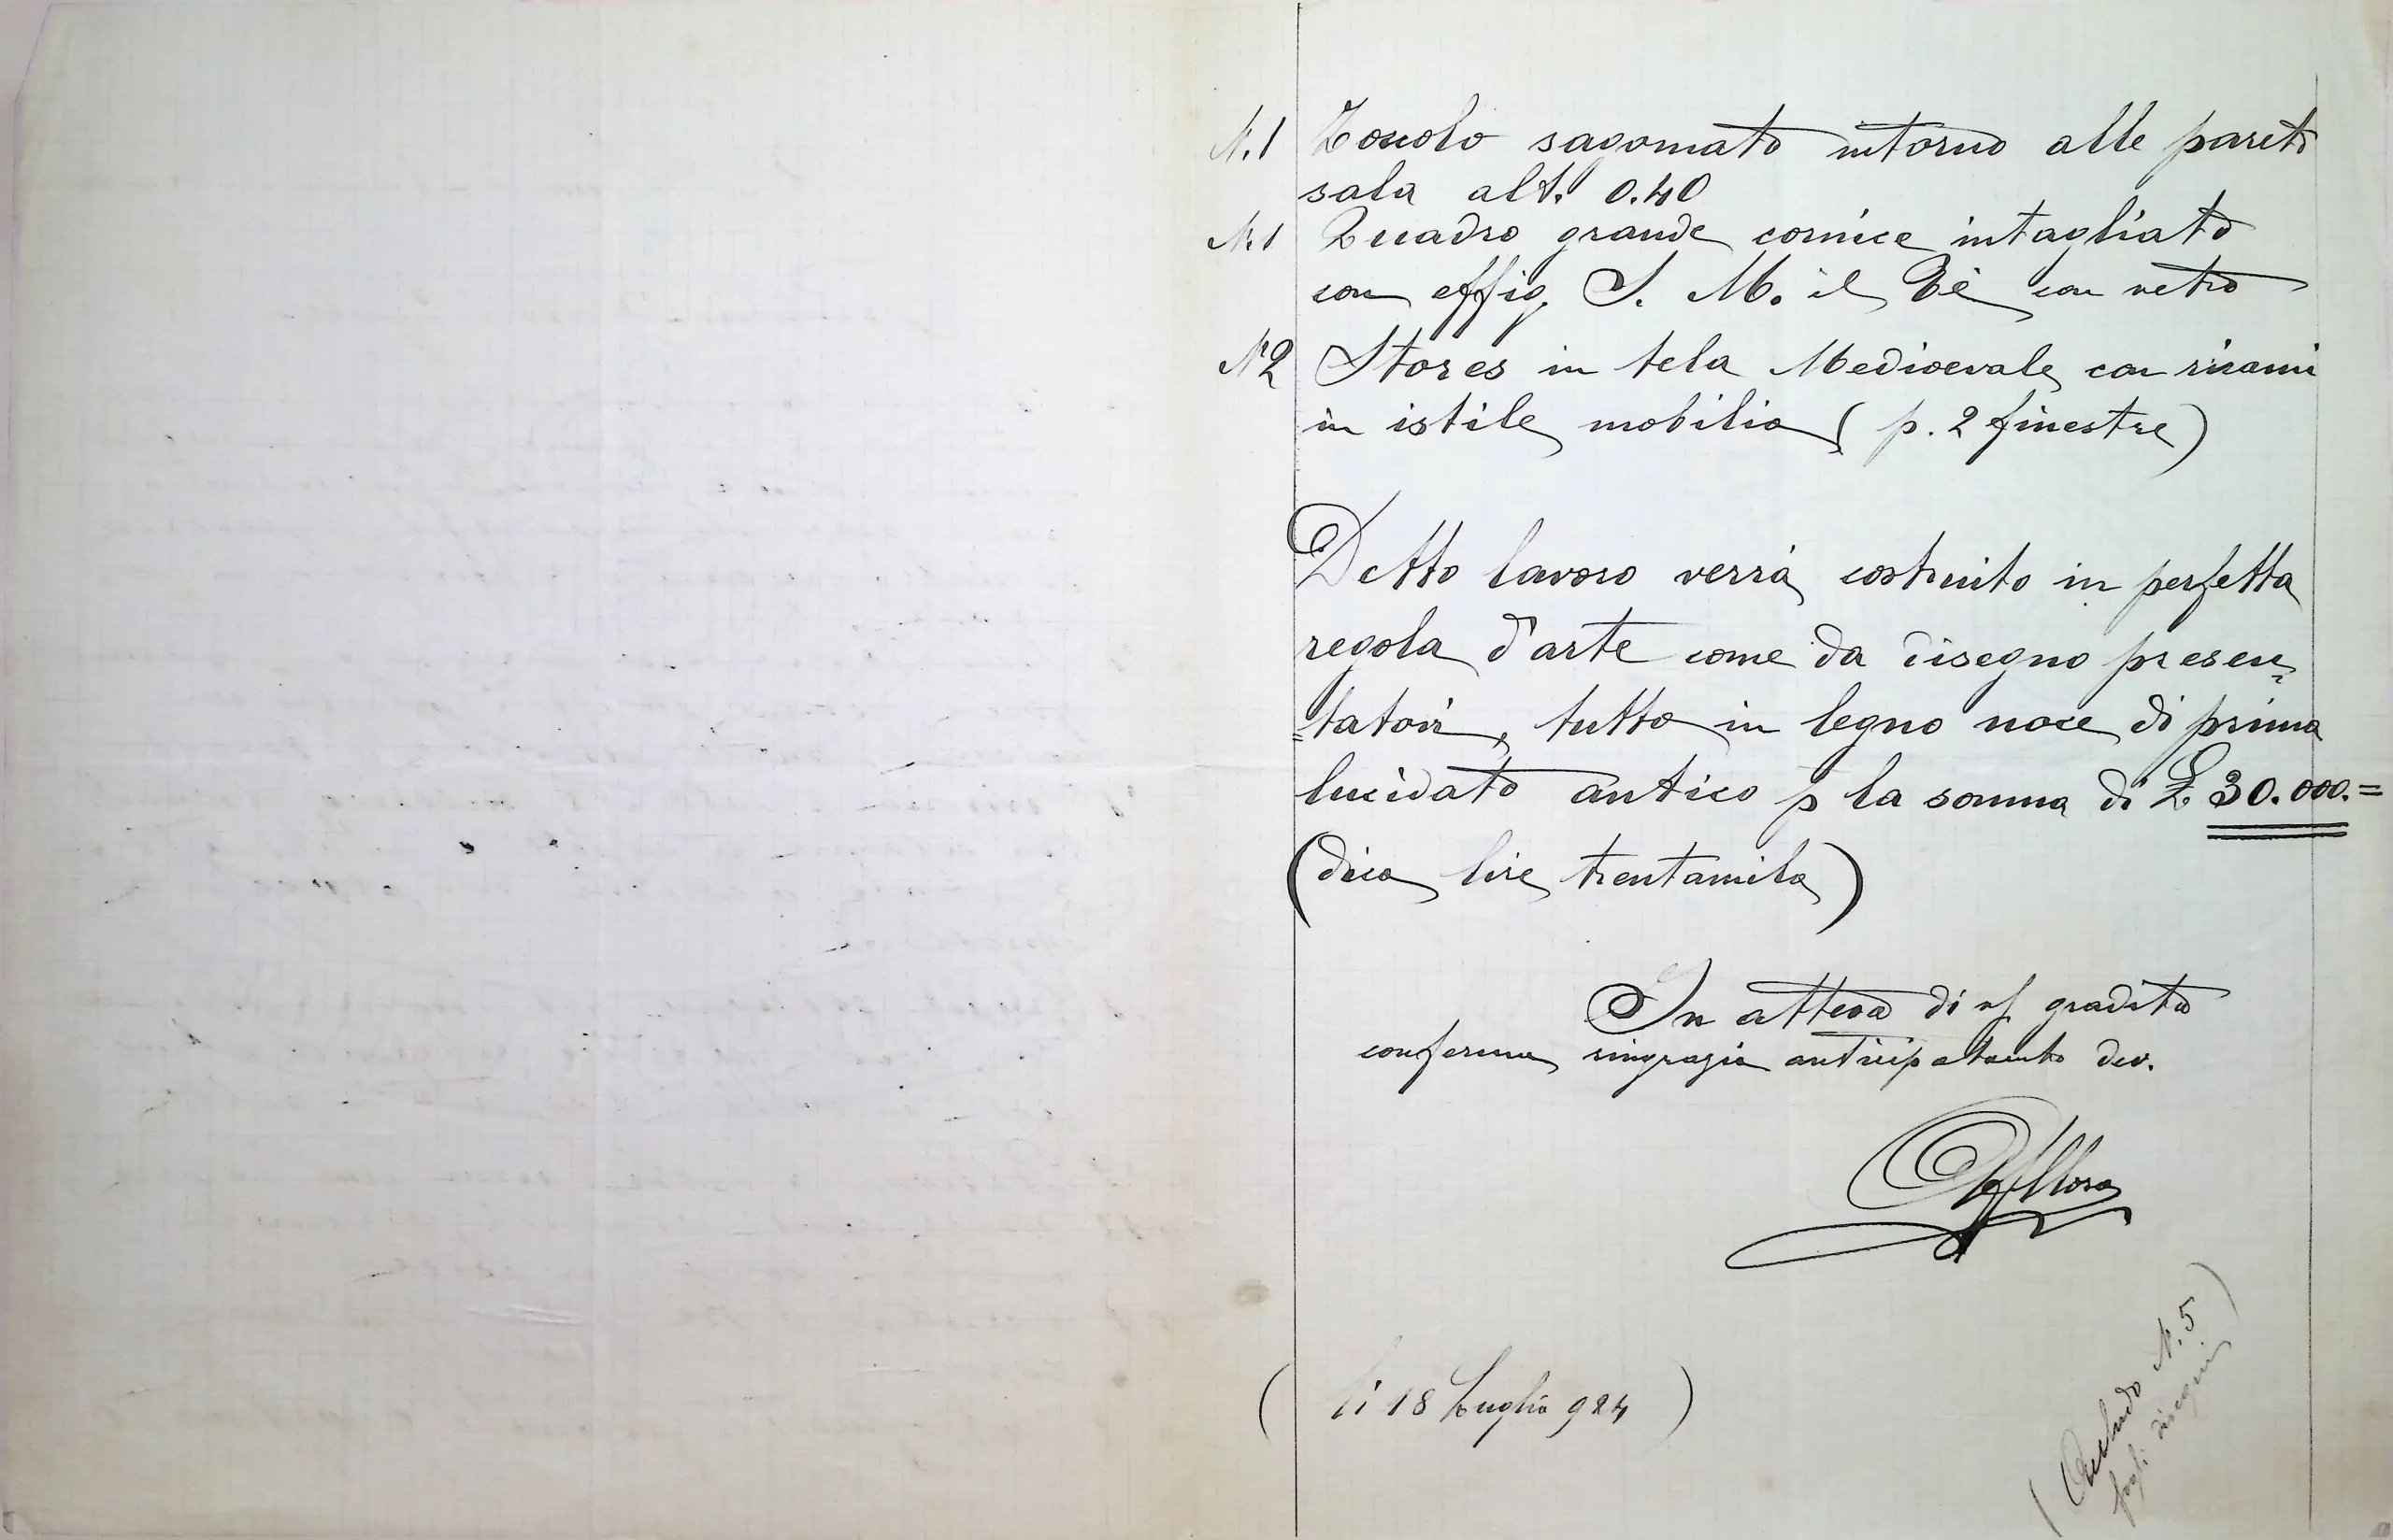 N.1 Zoccolo sagomato intorno alle pareti
sala alt. 0.40
N.1 Quadro grande cornice intagliato
con effig. S. M. il Rè con vetro
N 2 Stores in tela Medioevale con ricami
in istile mobilio ( p. 2 finestre )
Detto lavoro verrà costruito in perfetta
regola d'arte come da disegno presen=
=tatovi, tutto in legno noce di prima
lucidato antico p la somma di £ 30.000.=
(dico lire trentamila)
In attesa di vs gradita
conferma ringrazio anticipatamente dev.
( li 18 Luglio 924 )
( Accludo N. 5
fogli disegni )